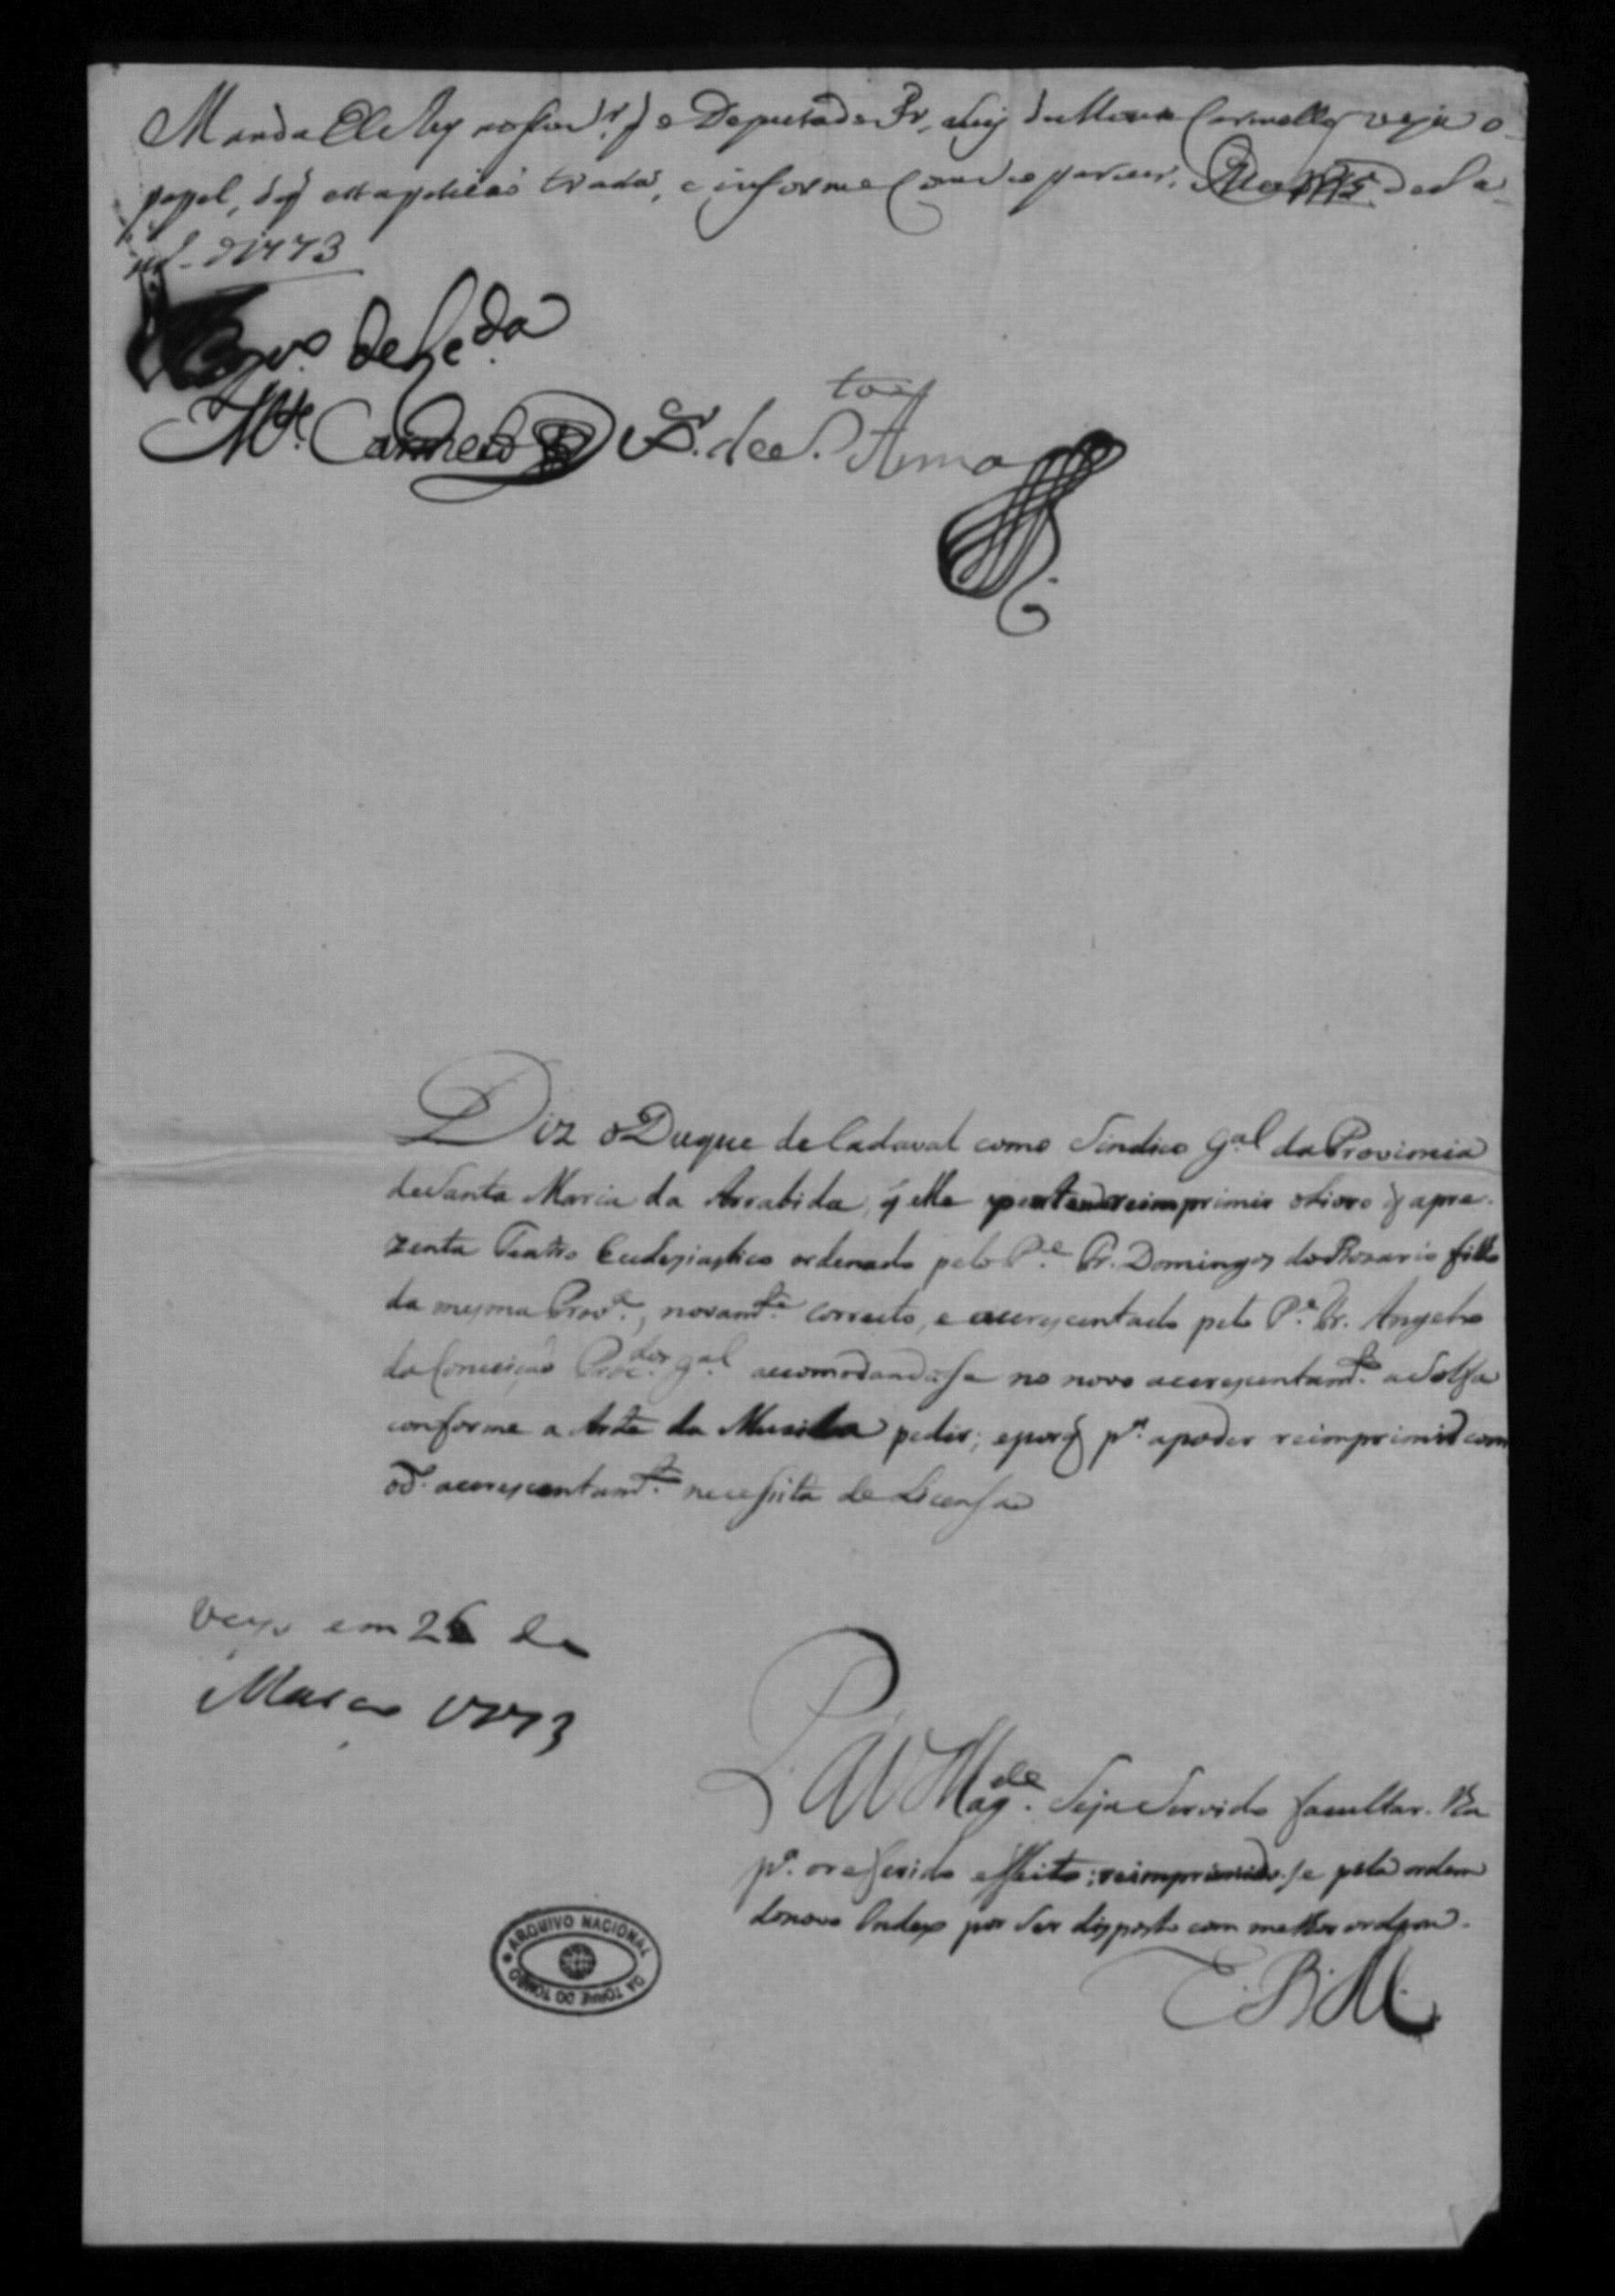 Manda ElRey nosso Sr. q̃ o Deputado Fr. Luiz do Monte Carmello veja o
papel, de q̃ esta petição trata, e informe com seo parecer. Meza de Ja
nrº. d 1773
Mte. Carmelo Fr. L. de S.ta Anna
Diz o Duque de Cadaval como Sindico G.al da Provincia
de Santa Maria da Arrabida, q̃ elle pertende reimprimir o Livro q̃ apre-
zenta Teatro Ecclesiastico ordenado pelo P.e Fr. Domingos do Rozario filho
da mesma Prov.a, novam.te correcto, e acerescentado pelo P.e Fr. Angelo
da Conceição Proc.dor g.al accomodando-se no novo acerescentam.to a Solfa
conforme a Arte da Musica pedir; e porq̃ p.a o poder reimprimir com
o d.o acerescentam.to necessita de Licensa
Veyo em 26 de
Março 1773
P. a V. Mag.de Seja Servido facultar-lha
p.a o referido effeito; reimprimindo-se pela ordem
do novo Index por Ser disposto com melhor ordem.
E. R. M.
ARQUIVO NACIONAL
DA TORRE DO TOMBO